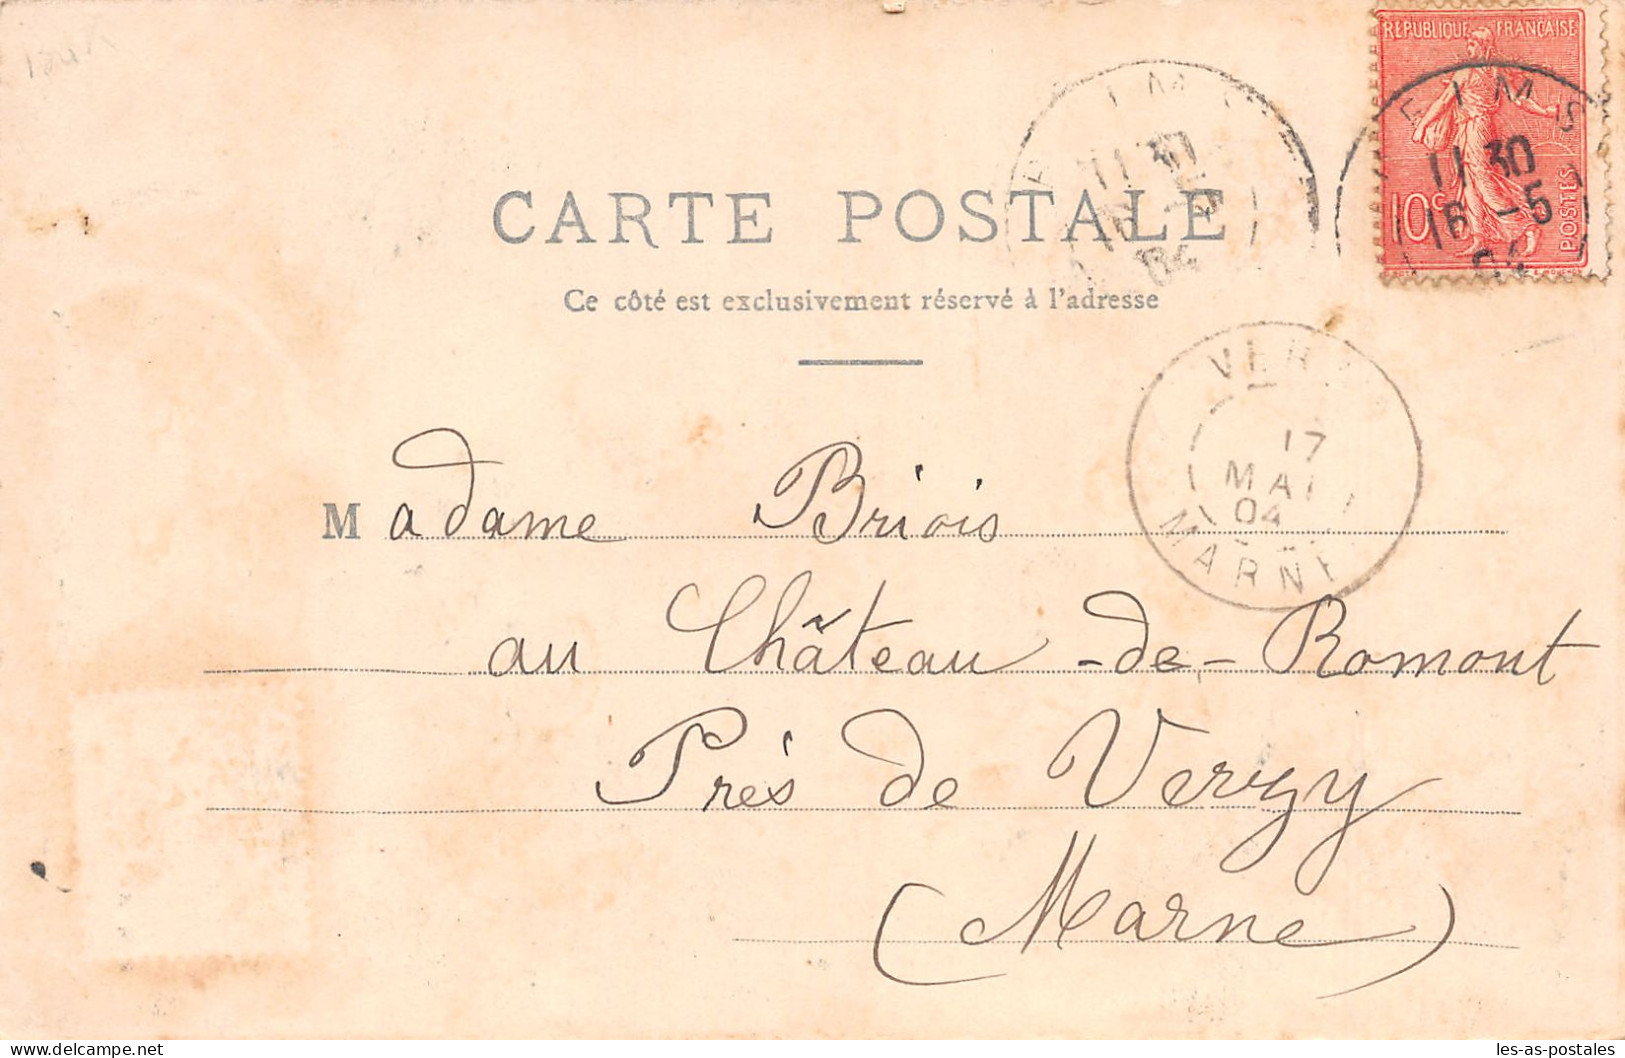 RÉPUBLIQUE FRANÇAISE
10c
POSTES
EIMS
11 30
16 -5
04
IM
11 30
04
CARTE POSTALE
Ce côté est exclusivement réservé à l'adresse
VER
17
MAI
04
MARNE
Madame Briois
au Château-de-Romont
Près de Verzy
(Marne)
les-as-postales